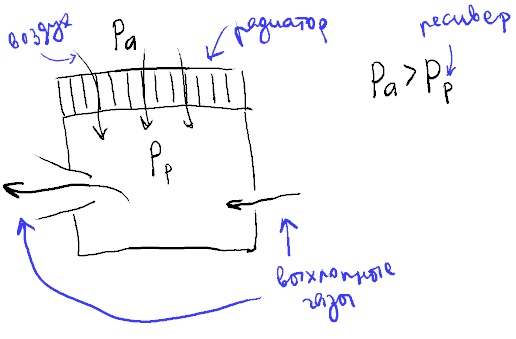 воздух
Pa
радиатор
ресивер
Pa > Pp
Pp
выхлопные
газы